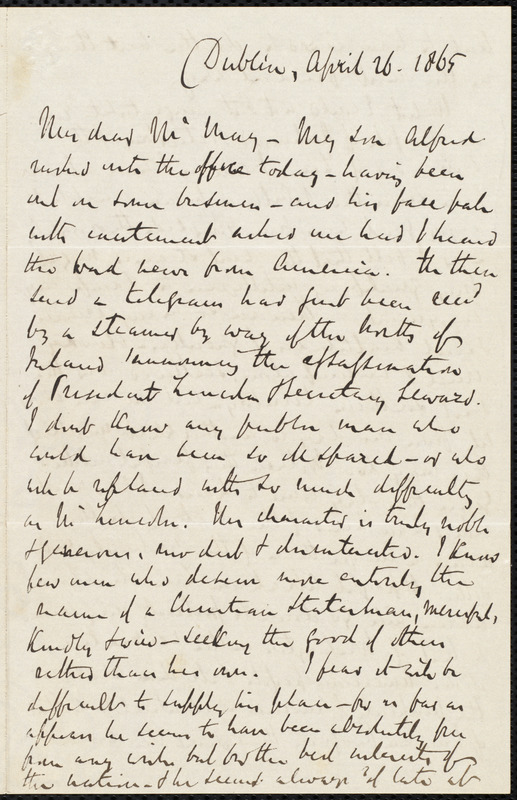 Dublin, April 26. 1865
My dear Mr May – My son Alfred
rushed into the office today – having been
out on some business – and his face pale
with excitement asked me had I heard
the bad news from America. He then
said a telegram had just been recd
by a steamer by way of the North of
Ireland announcing the assassination
of President Lincoln & Secretary Seward.
I dont know any public man who
could have been so ill spared – or who
will be replaced with so much difficulty
as Mr Lincoln. His character is truly noble
& generous, modest & disinterested. I know
few men who deserve more entirely the
name of a Christian Statesman, merciful,
kindly & wise – seeking the good of others
rather than his own. I fear it will be
difficult to supply his place – for as far as
appears he seems to have been absolutely free
from any wish but for the best interests of
the nation – & he seemed always of late at